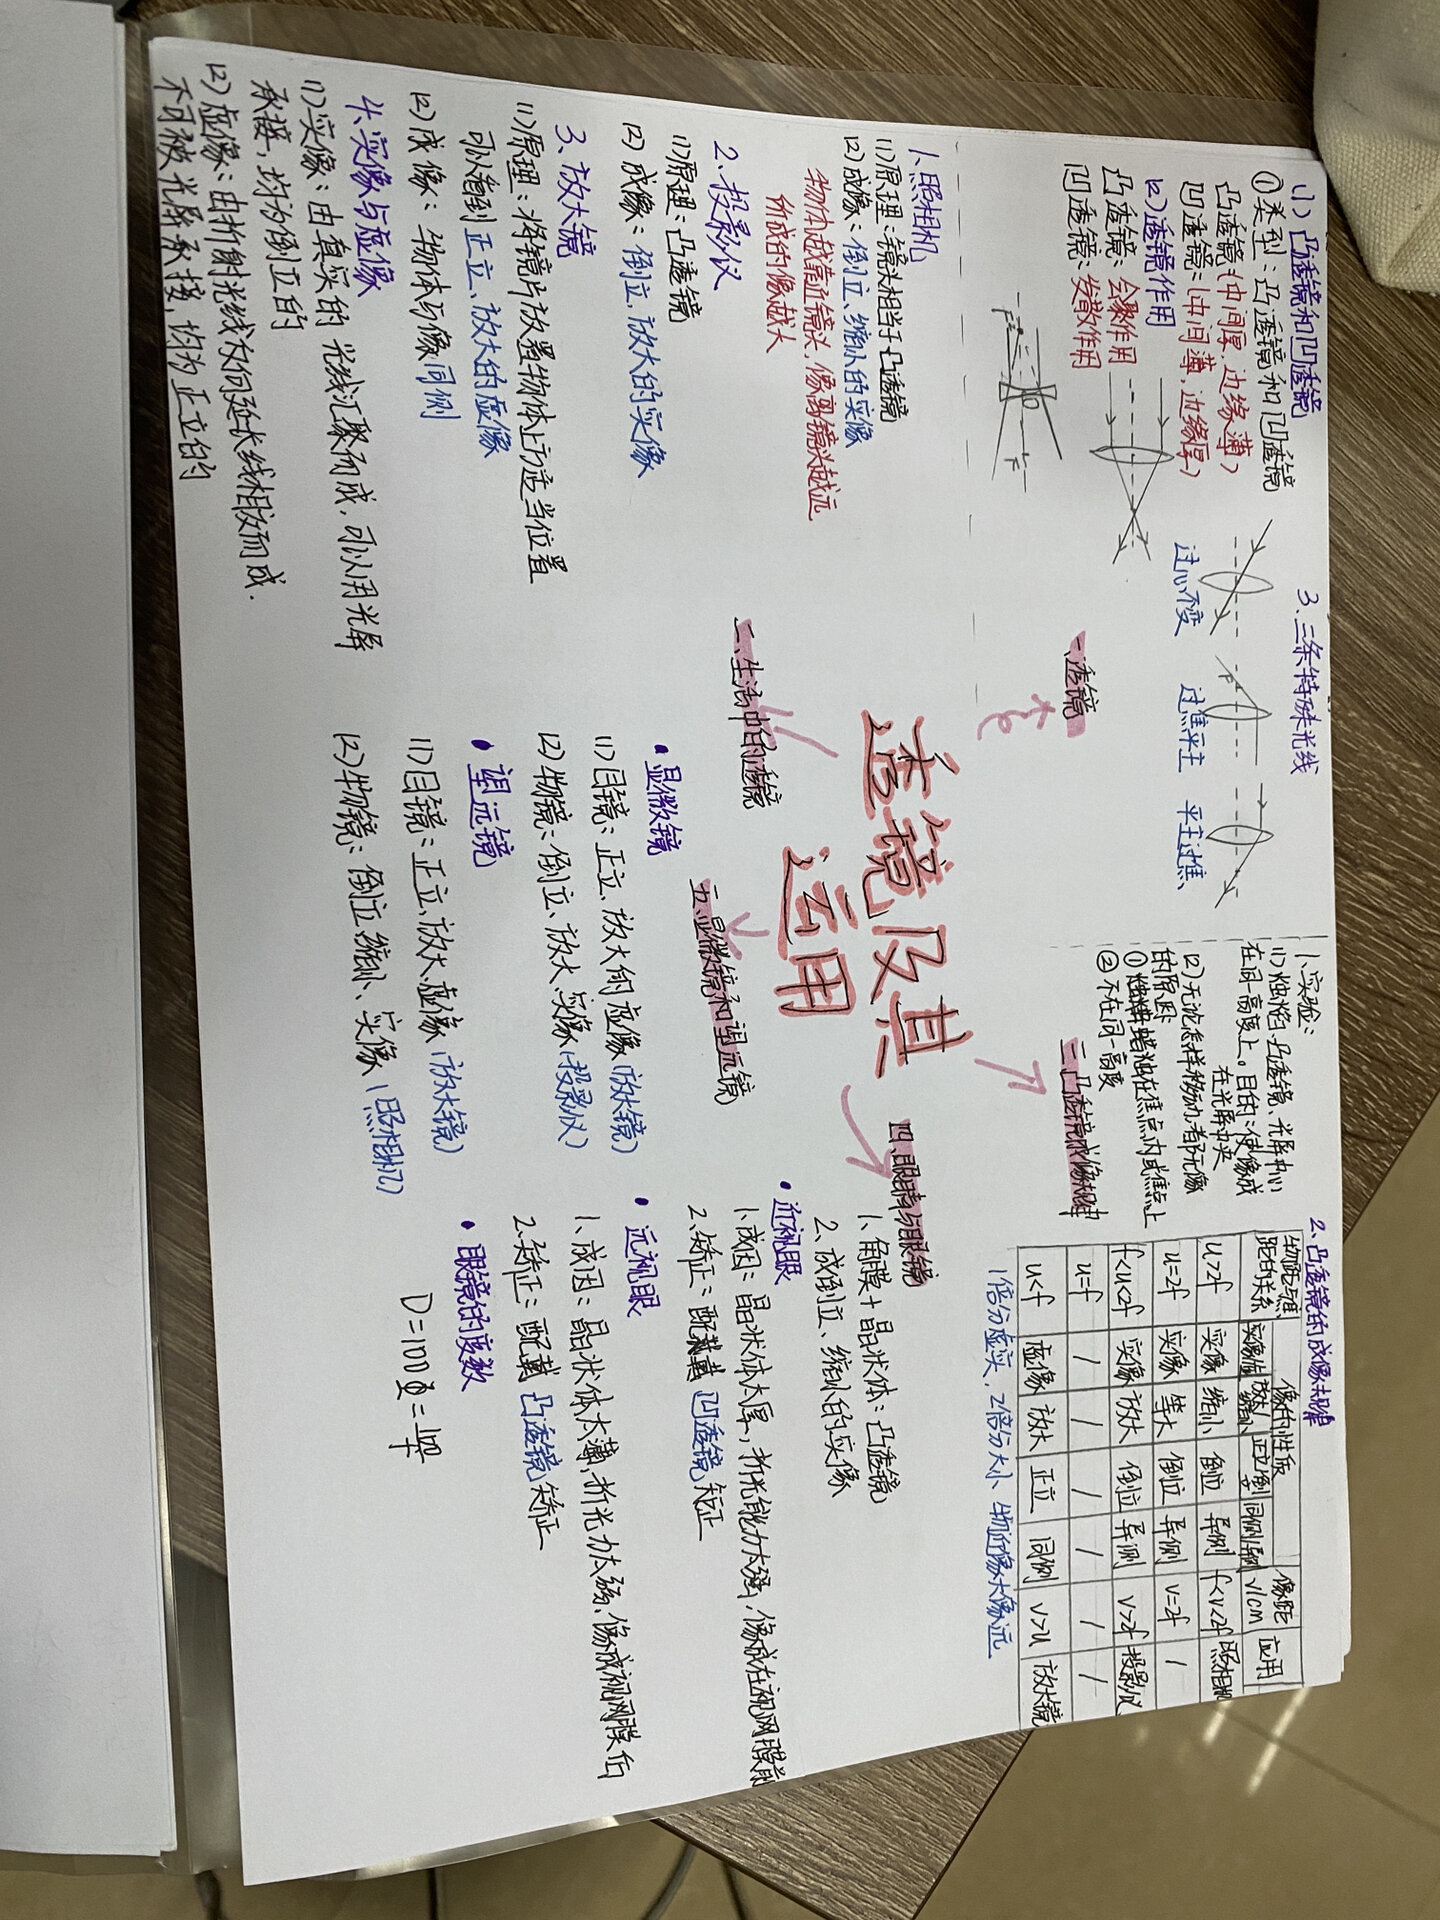 透镜及其
运用
一、透镜
(1) 凸透镜和凹透镜
①类型：凸透镜和凹透镜
凸透镜(中间厚，边缘薄)
凹透镜：(中间薄，边缘厚)
(2)透镜作用
凸透镜：会聚作用
凹透镜：发散作用
3、三条特殊光线
过心不变
过焦平主
平主过焦、
二、生活中的透镜
1、照相机
(1)原理：镜头相当于凸透镜
(2)成像：倒立、缩小的实像
物体越靠近镜头，像离镜头越远
所成的像越大
2、投影仪
(1)原理：凸透镜
(2) 成像：倒立、放大的实像
3、放大镜
(1)原理：将镜片放置物体上方适当位置
可以看到正立、放大的虚像
(2) 成像：物体与像同侧
4、实像与虚像
(1)实像：由真实的光线汇聚而成，可以用光屏
承接，均为倒立的
(2) 虚像：由折射光线反向延长线相交而成．
不可被光屏承接，均为正立的
三凸透镜成像规律
1、实验：
(1) 烛焰、凸透镜、光屏中心
在同一高度上。目的：使像成
在光屏中央
(2)无论怎样移动都无像
的原因
①蜡烛在焦点内或焦点上
②不在同一高度
2、凸透镜的成像规律
物距与焦距的关系 像的性质 像距v/cm 应用
实像虚像 放大缩小 正立倒立 同侧异侧
u>2f 实像 缩小 倒立 异侧 f<v<2f 照相机
u=2f 实像 等大 倒立 异侧 v=2f /
f<u<2f 实像 放大 倒立 异测 v>2f 投影仪
u=f / / / / / /
u<f 虚像 放大 正立 同侧 v>u 放大镜
1倍分虚实，2倍分大小 物近像大像远
四、眼睛与眼镜
1、角膜＋晶状体：凸透镜
2、成倒立、缩小的实像
• 近视眼
1、成因：晶状体太厚，折光能力太强，像成在视网膜前
2、矫正：配戴 凹透镜 矫正
• 远视眼
1、成因：晶状体太薄，折光力太弱，像成视网膜后
2、矫正：配戴 凸透镜矫正
• 眼镜的度数
五、显微镜和望远镜
• 显微镜
(1)目镜：正立、放大的虚像(放大镜)
(2)物镜：倒立、放大、实像(投影仪)
• 望远镜
(1)目镜：正立、放大、虚像(放大镜)
(2)物镜：倒立、缩小、实像(照相机)